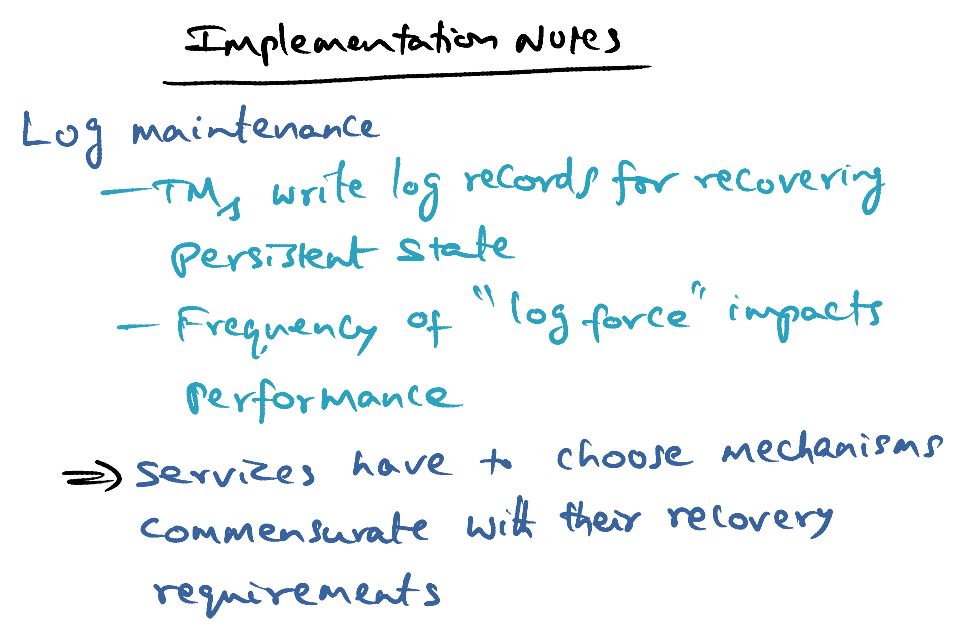 Implementation Notes
Log maintenance
— TMs write log records for recovering
persistent state
— Frequency of "log force" impacts
performance
⇒ services have to choose mechanisms
commensurate with their recovery
requirements